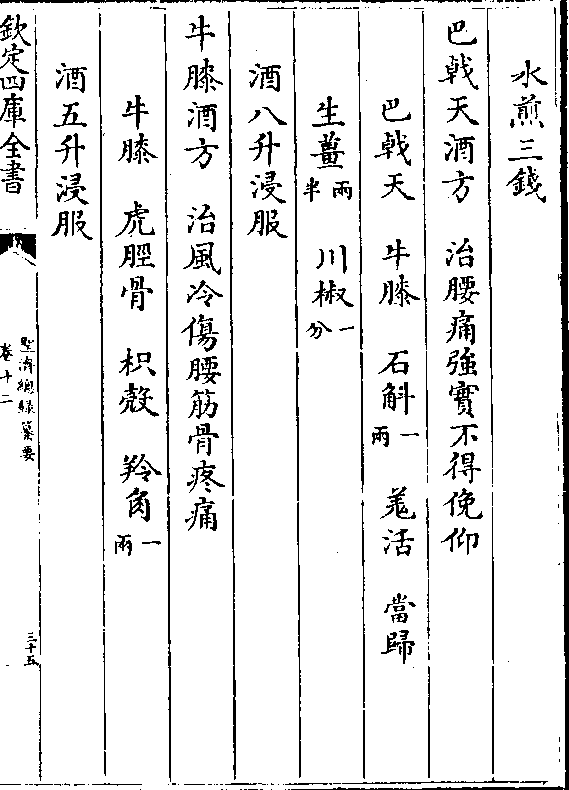 水煎三錢
巴戟天酒方　治腰痛強實不得俛仰
巴戟天　牛膝　石斛一兩　羗活　當歸
生薑兩半　川椒一分
酒八升浸服
牛膝酒方　治風冷傷腰筋骨疼痛
牛膝　虎脛骨　枳殼　羚角一兩
酒五升浸服
欽定四庫全書
聖濟總録纂要
卷十二
三十五